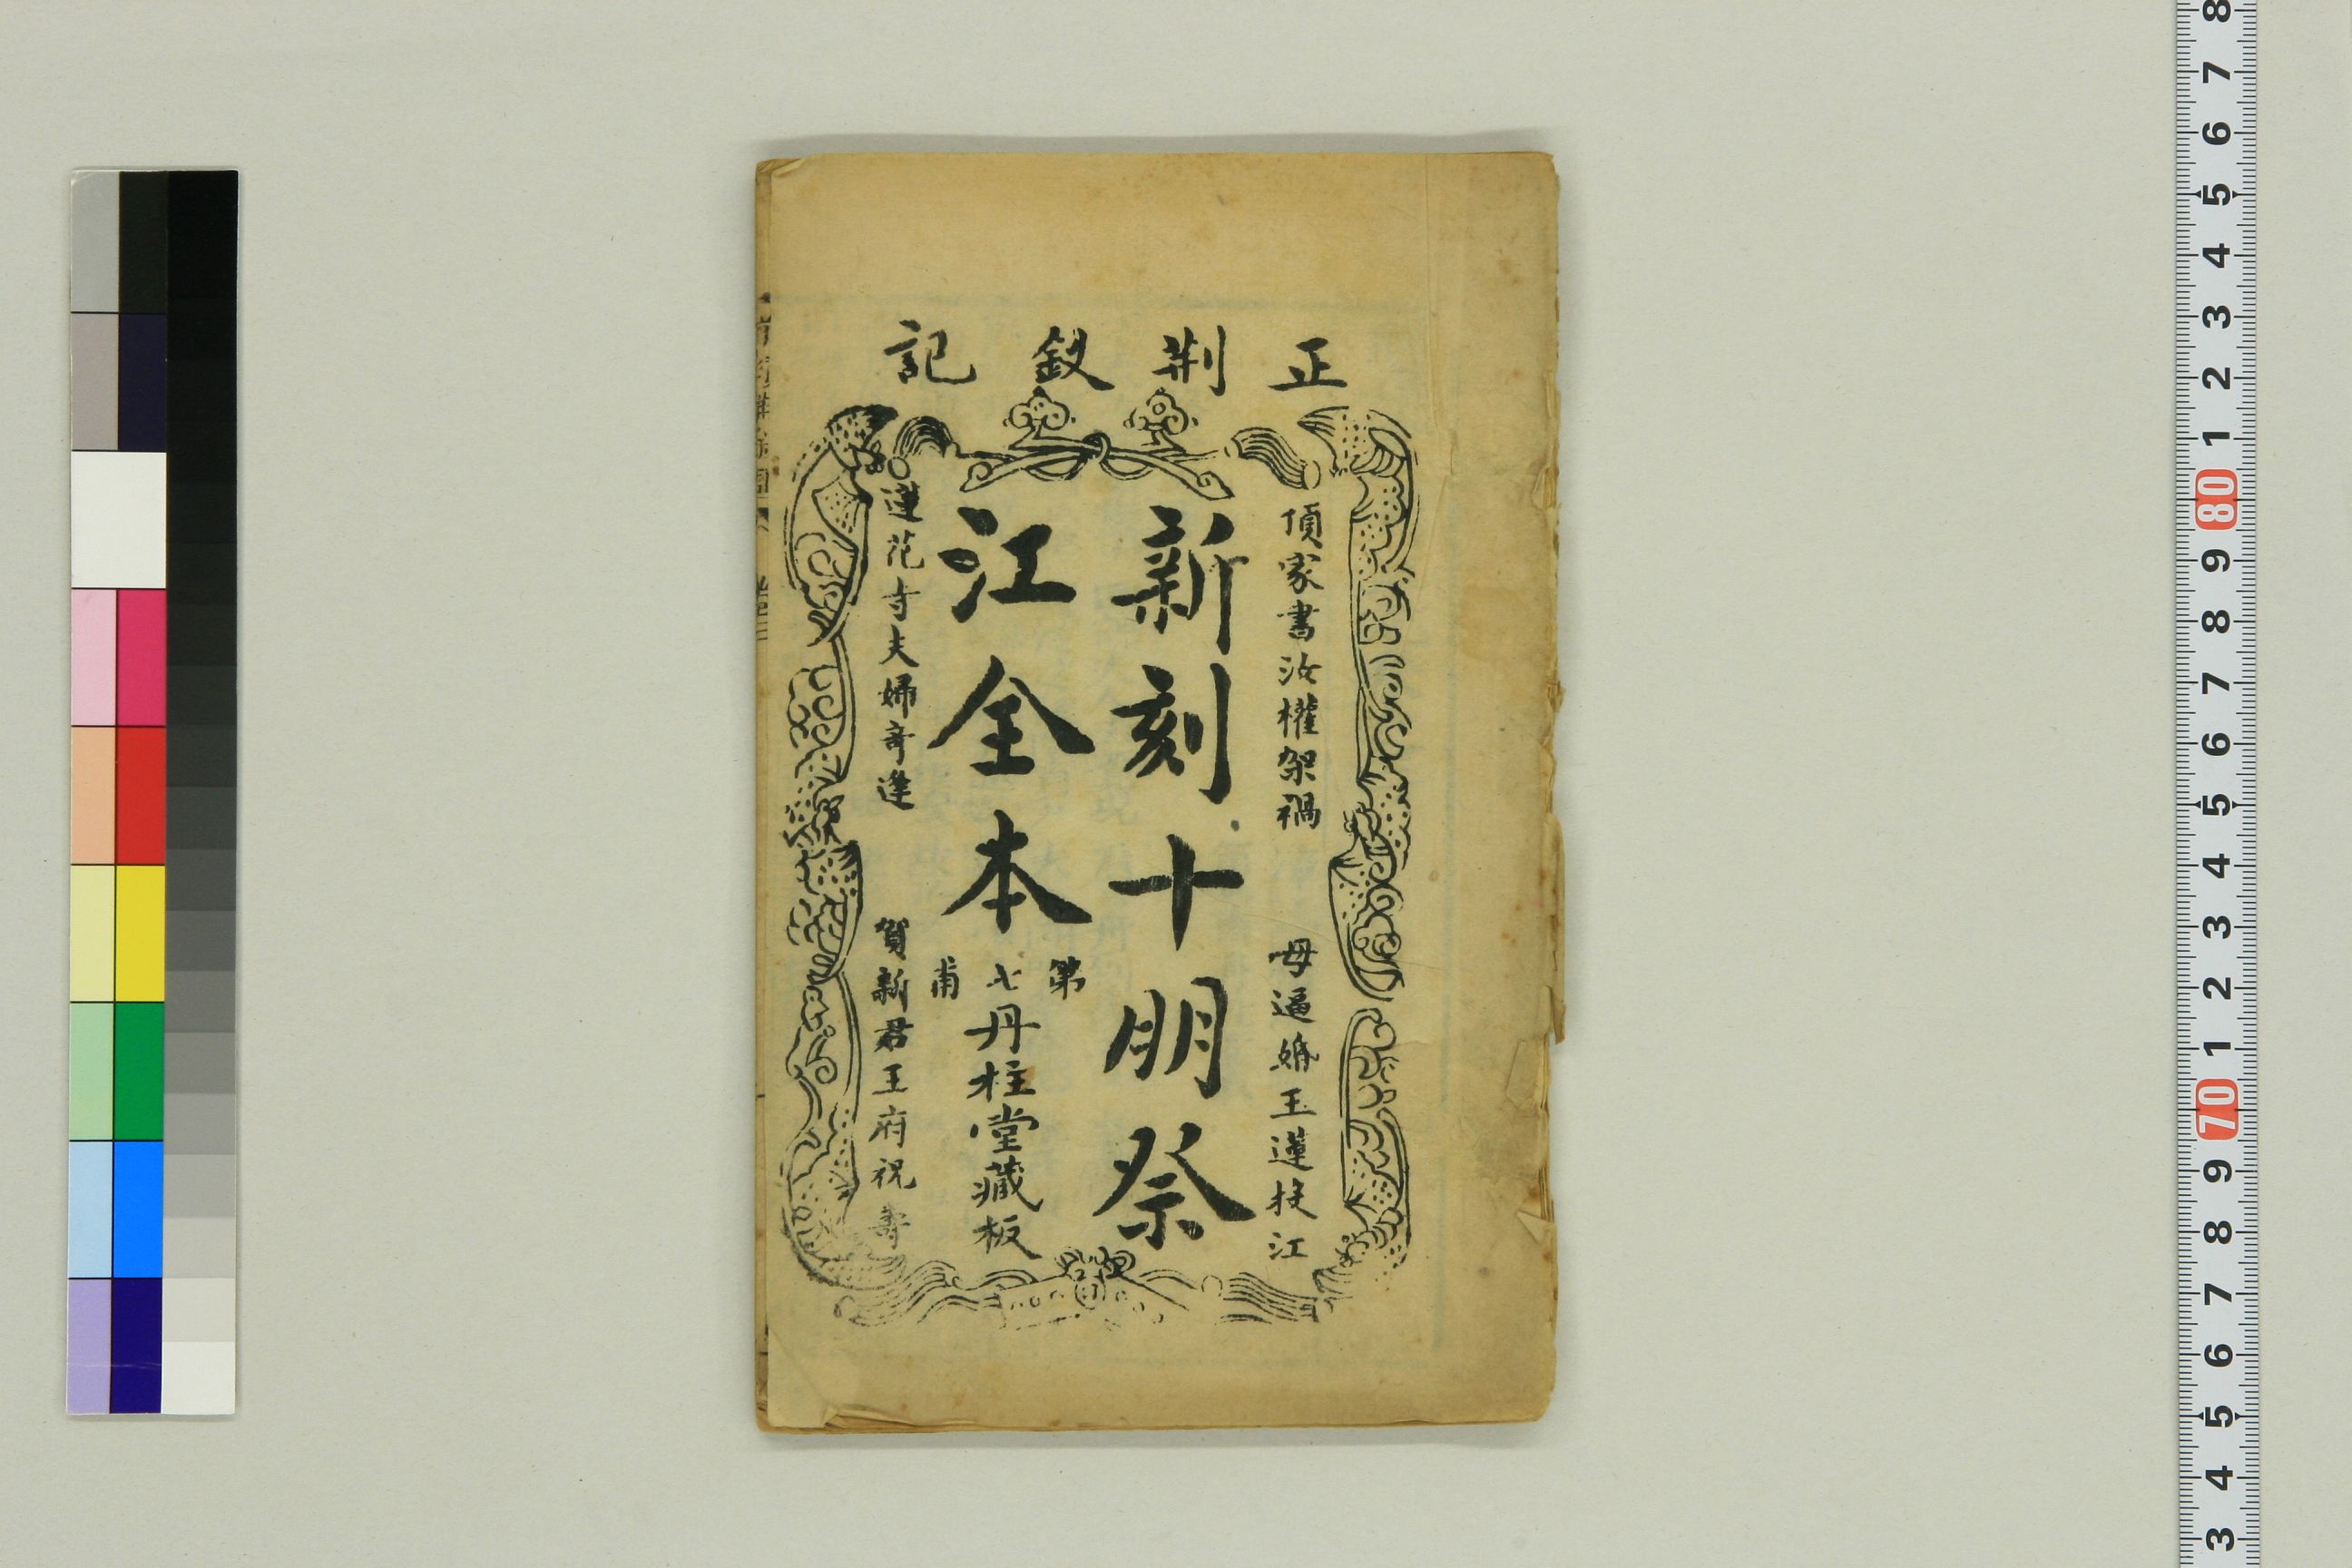 正荆釵記
頂家書汝權架禍
母逼婚玉蓮投江
新刻十朋祭
江全本
第七甫
丹柱堂藏板
蓮花寺夫婦奇逢
賀新君王府祝壽
8
7
6
5
4
3
2
1
80
9
8
7
6
5
4
3
2
1
70
9
8
7
6
5
4
3